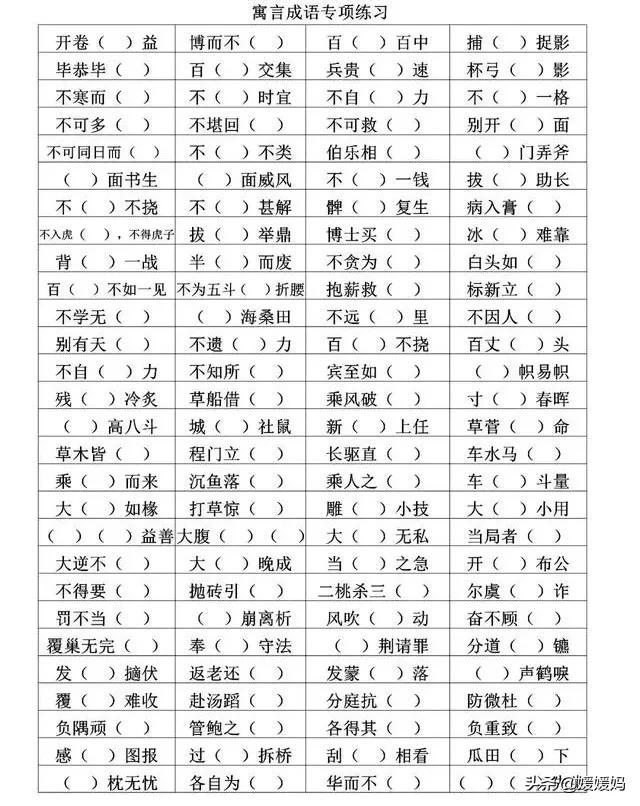 寓言成语专项练习
开卷（ ）益 博而不（ ） 百（ ）百中 捕（ ）捉影
毕恭毕（ ） 百（ ）交集 兵贵（ ）速 杯弓（ ）影
不寒而（ ） 不（ ）时宜 不自（ ）力 不（ ）一格
不可多（ ） 不堪回（ ） 不可救（ ） 别开（ ）面
不可同日而（ ） 不（ ）不类 伯乐相（ ） （ ）门弄斧
（ ）面书生 （ ）面威风 不（ ）一钱 拔（ ）助长
不（ ）不挠 不（ ）甚解 髀（ ）复生 病入膏（ ）
不入虎（ ），不得虎子 拔（ ）举鼎 博士买（ ） 冰（ ）难靠
背（ ）一战 半（ ）而废 不贪为（ ） 白头如（ ）
百（ ）不如一见 不为五斗（ ）折腰 抱薪救（ ） 标新立（ ）
不学无（ ） （ ）海桑田 不远（ ）里 不因人（ ）
别有天（ ） 不遗（ ）力 百（ ）不挠 百丈（ ）头
不自（ ）力 不知所（ ） 宾至如（ ） （ ）帜易帜
残（ ）冷炙 草船借（ ） 乘风破（ ） 寸（ ）春晖
（ ）高八斗 城（ ）社鼠 新（ ）上任 草菅（ ）命
草木皆（ ） 程门立（ ） 长驱直（ ） 车水马（ ）
乘（ ）而来 沉鱼落（ ） 乘人之（ ） 车（ ）斗量
大（ ）如椽 打草惊（ ） 雕（ ）小技 大（ ）小用
（ ）（ ）益善 大腹（ ）（ ） 大（ ）无私 当局者（ ）
大逆不（ ） 大（ ）晚成 当（ ）之急 开（ ）布公
不得要（ ） 抛砖引（ ） 二桃杀三（ ） 尔虞（ ）诈
罚不当（ ） （ ）崩离析 风吹（ ）动 奋不顾（ ）
覆巢无完（ ） 奉（ ）守法 （ ）荆请罪 分道（ ）镳
发（ ）摘伏 返老还（ ） 发蒙（ ）落 （ ）声鹤唳
覆（ ）难收 赴汤蹈（ ） 分庭抗（ ） 防微杜（ ）
负隅顽（ ） 管鲍之（ ） 各得其（ ） 负重致（ ）
感（ ）图报 过（ ）拆桥 刮（ ）相看 瓜田（ ）下
（ ）枕无忧 各自为（ ） 华而不（ ） （ ）（
头条@媛媛妈